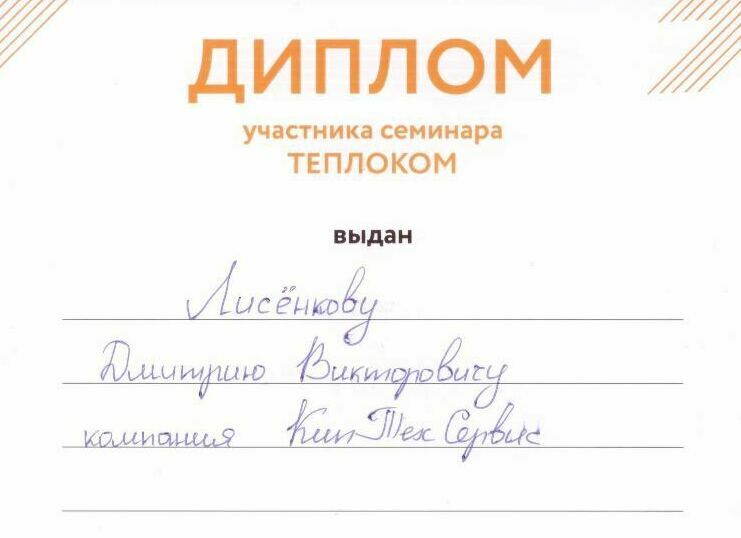 ДИПЛОМ
участника семинара
ТЕПЛОКОМ
выдан
Лисёнкову
Дмитрию Викторовичу
компания КипТехСервис